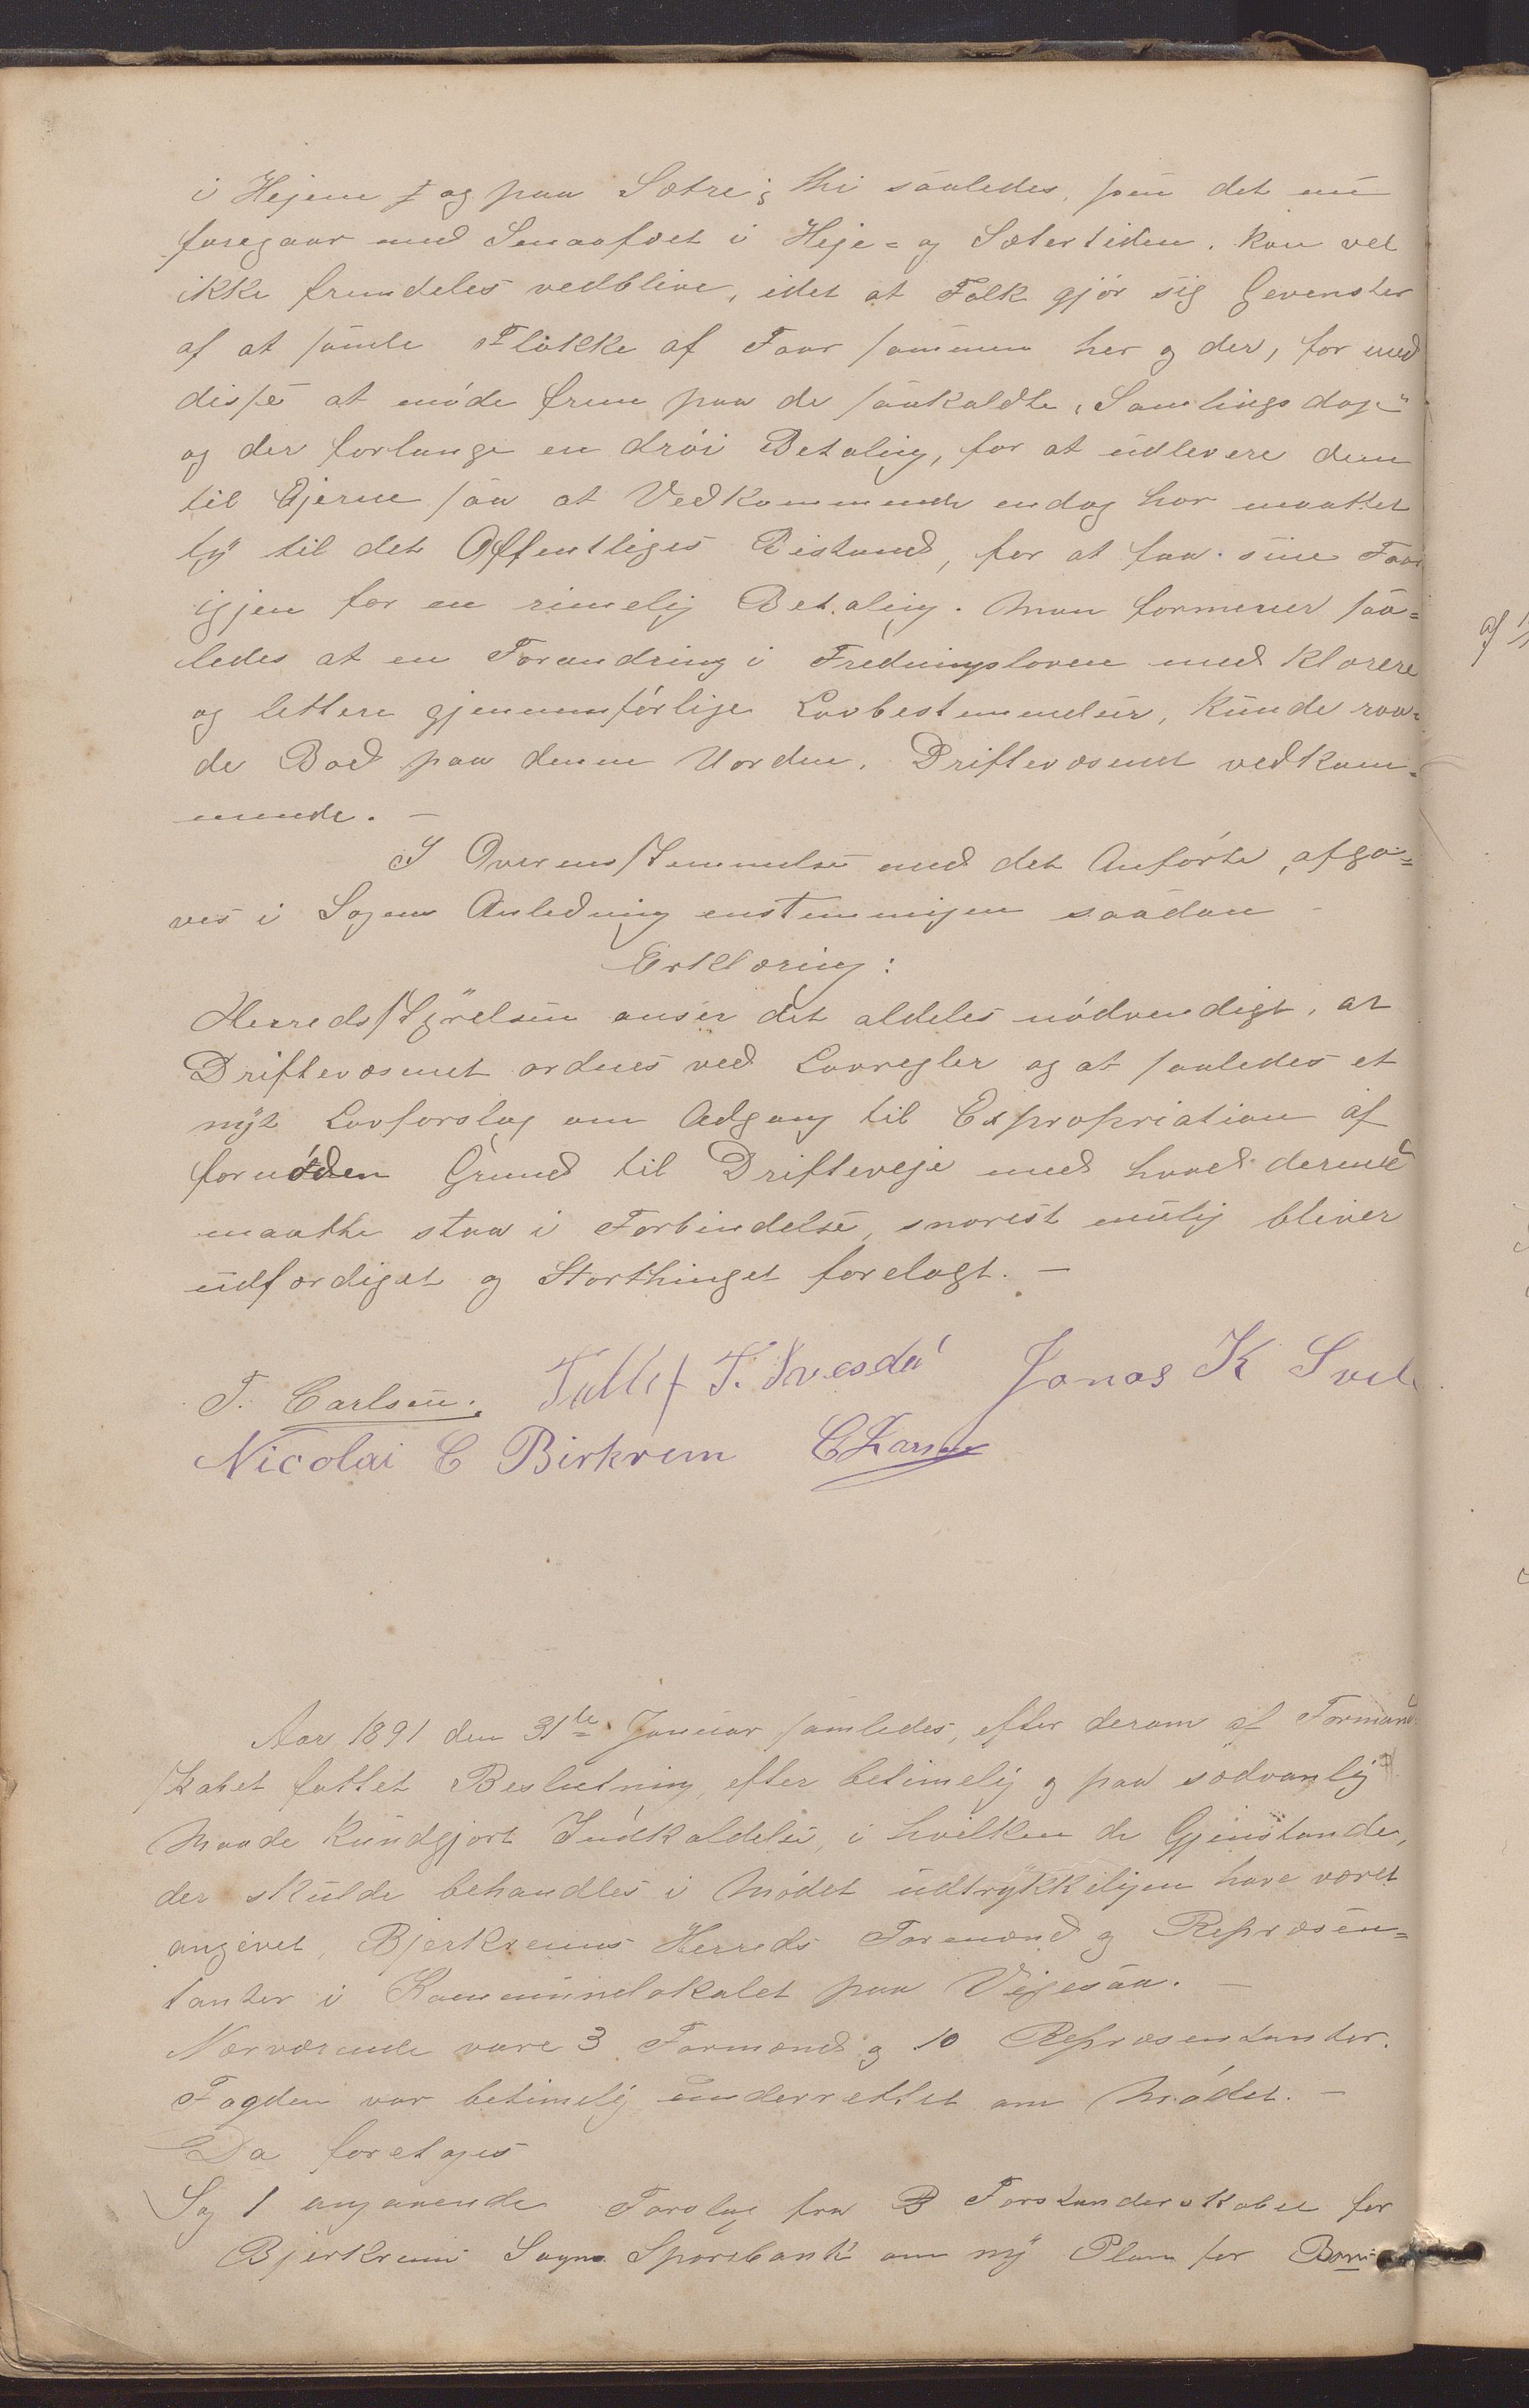 i Hejene og paa Sætre; thi saaledes, som det nu
foregaar med Smaafæet i Heje- og Sætertiden. kan vel
ikke fremdeles vedblive, idet at Folk gjør sig Gevenster
af at samle Flokke af Faar sammen her og der, for med
disse at møde frem paa de saakaldte „Samlingsdage"
og der forlange en drøi Betaling, for at udlevere dem
til Ejerne saa at Vedkommende endog har maattet
ty til det Offentliges Bistand, for at faa sine Faar
igjen for en rimelig Betaling. Man formener saa-
ledes at en Forandring i Fredningsloven med klarere
og lettere gjennemførlige Lovbestemmelser, kunde raa-
de Bod paa denne Uorden. Driftevæsenet vedkom-
mende. —
I Overensstemmelse med det Anførte, afga-
ves i Sagens Anledning enstemmigen saadan
Erklæring:
Herredsstyrelsen anser det aldeles nødvendigt, at
Driftevæsenet ordnes ved Lovregler og at saaledes et
nyt Lovforslag om Adgang til Expropriation af
fornøden Grund til Drifteveje med hvad dermed
maatte staa i Forbindelse, snarest mulig bliver
udfærdiget og Storthinget forelagt. —
T. Carlsen. Tollef T. Jonas K
Nicolai C Birkrem C Larsen
Aar 1891 den 31te Januar samledes, efter derom af Formand-
skabet fattet Beslutning, efter betimelig og paa sædvanlig
Maade kundgjort Indkaldelse, i hvilken de Gjenstande,
der skulde behandles i Mødet udtrykkeligen have været
angivet, Bjerkreims Herreds Formænd og Repræsen-
tanter i Kommunelokalet paa Vigesaa. —
Nærværende vare 3 Formænd og 10 Repræsentanter.
Fogden var betimelig underrettet om Mødet. —
Da foretoges
Sag 1 angaaende Forslag fra Forstanderskabet for
Bjerkreim Sogns Sparebank om ny Plan for